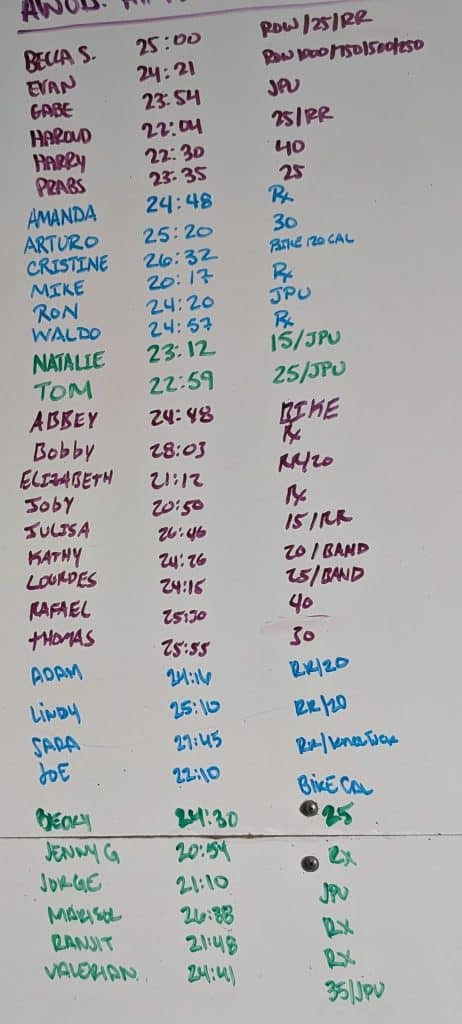 AWOD:
BECCA S. 25:00 ROW/25/RR
EVAN 24:21 ROW 1000/750/500/250
GABE 23:54 JPU
HAROLD 22:04 25/RR
HARRY 22:30 40
PRABS 23:35 25
AMANDA 24:48 Rx
ARTURO 25:20 30
CRISTINE 26:32 BIKE 120 CAL
MIKE 20:17 Rx
RON 24:20 JPU
WALDO 24:57 Rx
NATALIE 23:12 15/JPU
TOM 22:59 25/JPU
ABBEY 24:48 BIKE
Bobby 28:03 Rx
ELIZABETH 21:12 RR/20
JOBY 20:50 Rx
JULISA 26:46 15/RR
KATHY 24:26 20/BAND
LOURDES 24:15 25/BAND
RAFAEL 25:30 40
THOMAS 25:55 30
ADAM 24:16 RR/20
LINDY 25:10 RR/20
SARA 27:45 Rx/
JOE 22:10 BIKE CAL
BECKY 24:30 25
JENNY G 20:54 Rx
JORGE 21:10 JPU
MARISOL 26:38 Rx
RANJIT 21:48 Rx
VALERIAN 24:41 35/JPU